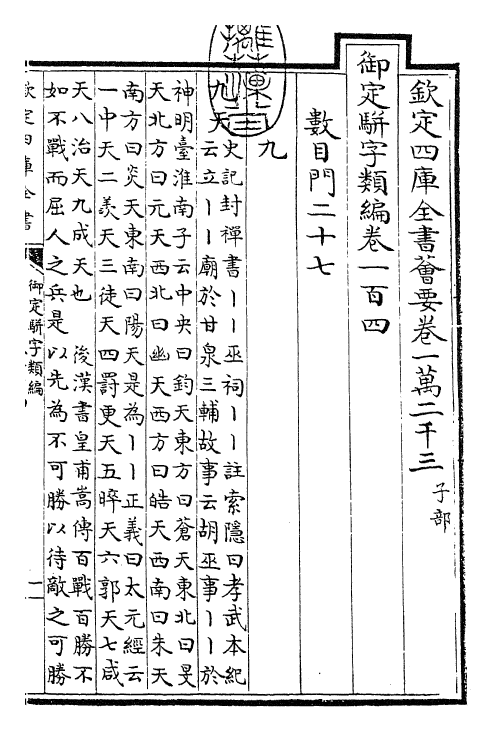 欽定四庫全書薈要卷一萬二千三 子部
御定駢字類編卷一百四
數目門二十七
九
九天 史記封禪書丨丨巫祠丨丨註索隱曰孝武本紀
云立丨丨廟於甘泉三輔故事云胡巫事丨丨於
神明臺淮南子云中央曰鈞天東方曰蒼天東北曰旻
天北方曰元天西北曰幽天西方曰皓天西南曰朱天
南方曰炎天東南曰陽天是為丨丨正義曰太元經云
一中天二羡天三徒天四罰更天五晬天六郭天七咸
天八治天九成天也 後漢書皇甫嵩傳百戰百勝不
如不戰而屈人之兵是以先為不可勝以待敵之可勝
欽定四庫全書
御定駢字類編